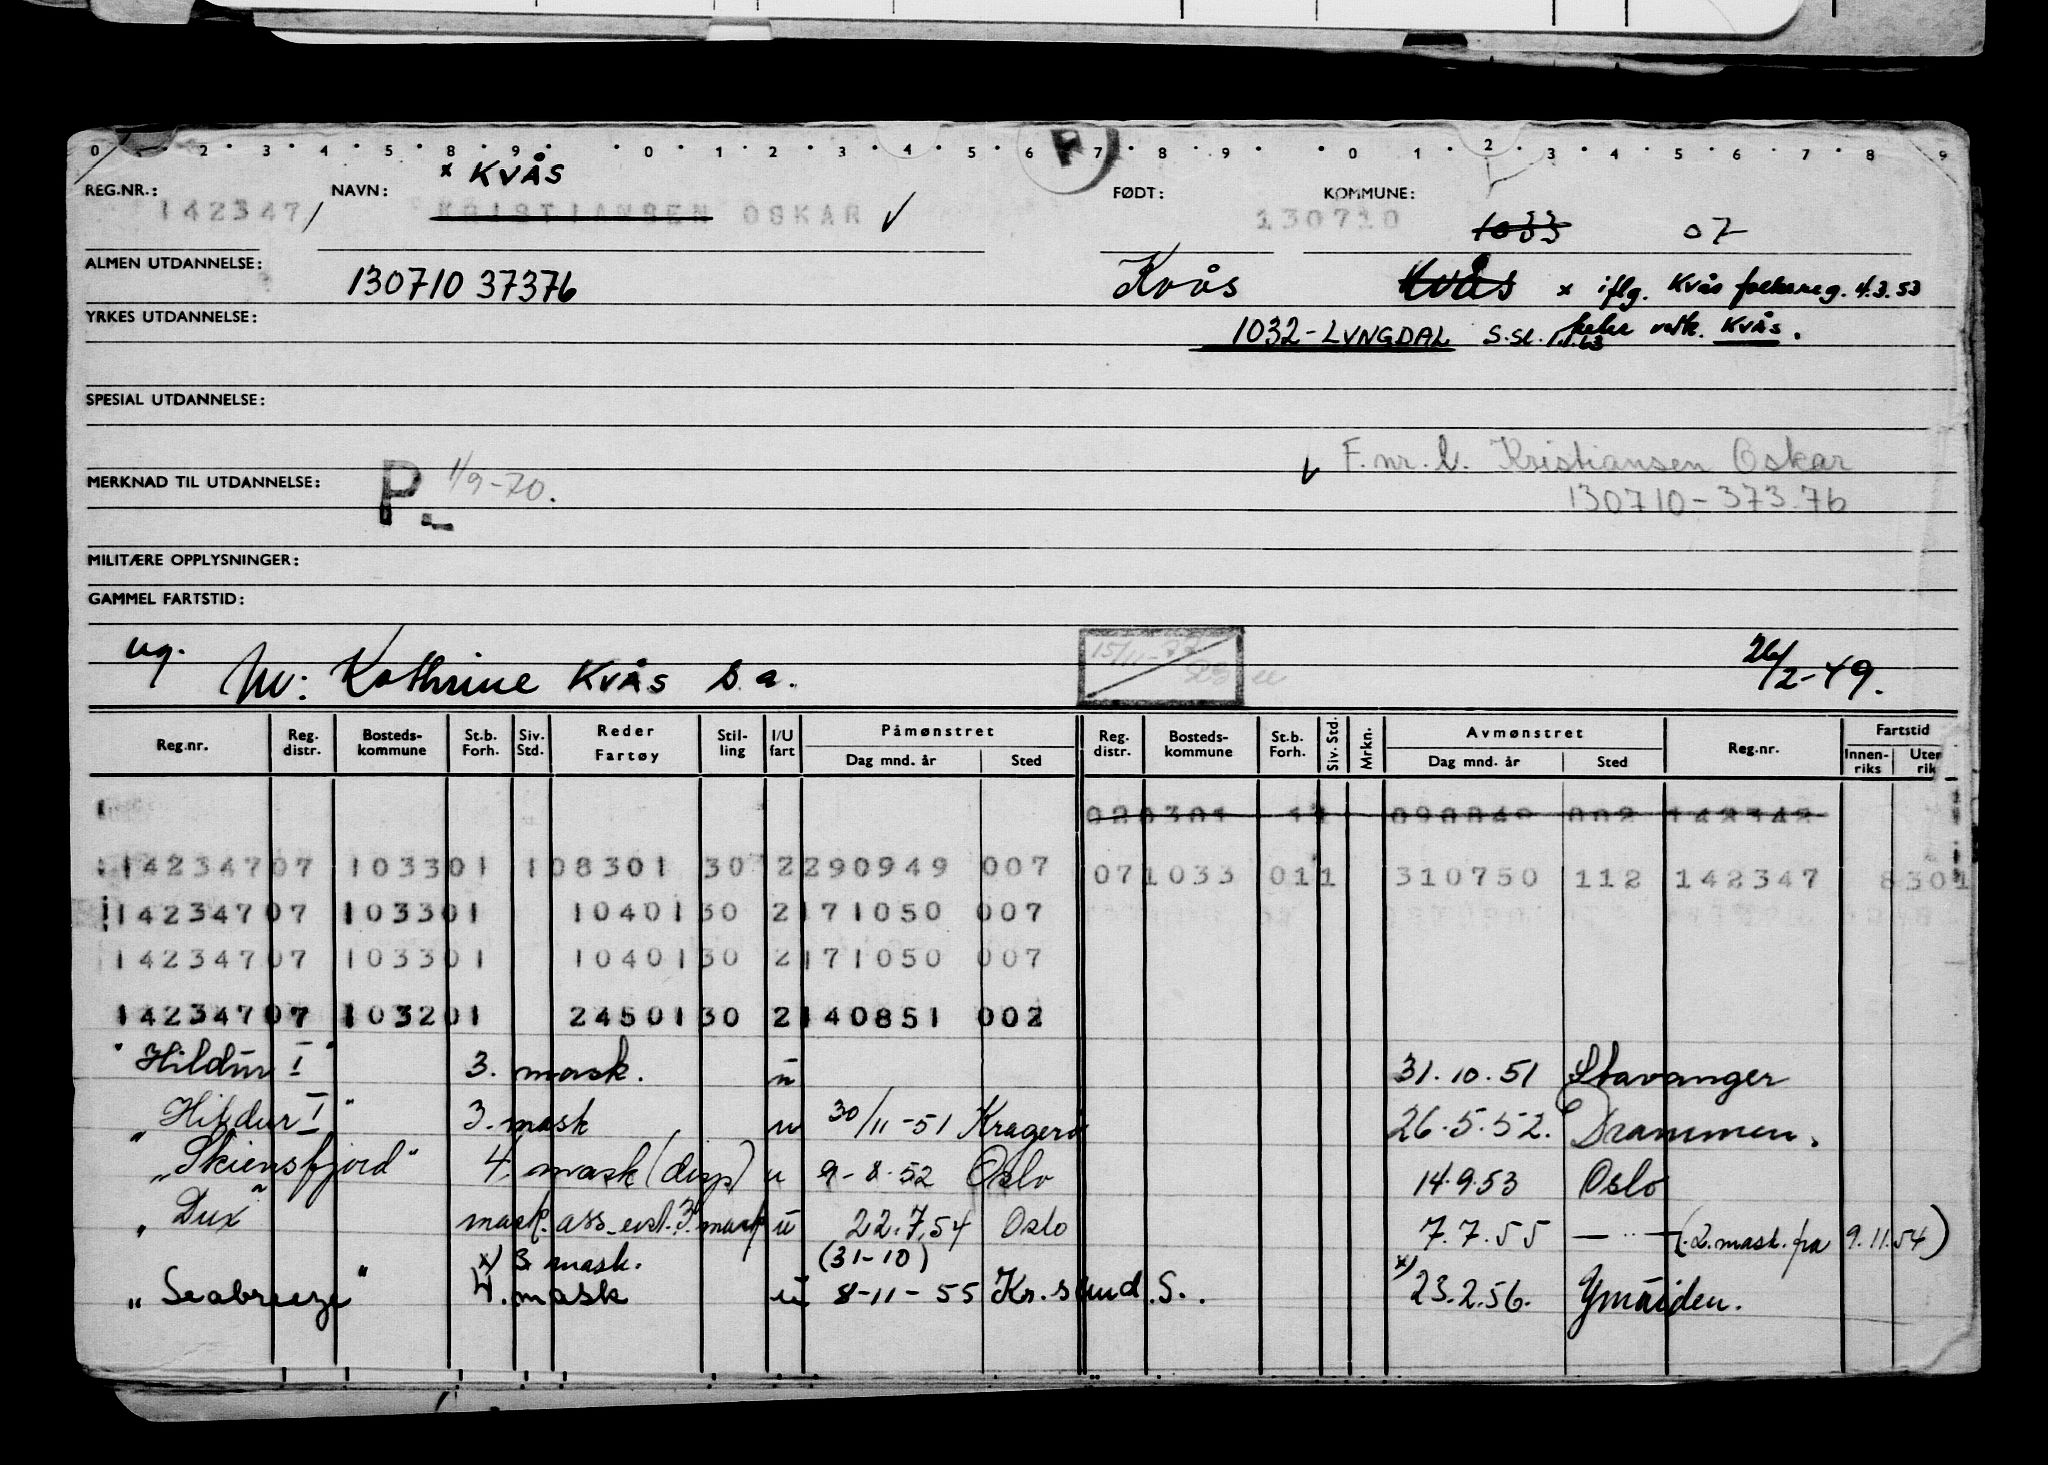 0 · 2 · 3 · 4 · 5 · 8 · 9 · · 0 · 1 · 2 · 3 · 4 · 5 · 6 F 7 · 8 · 9 · · 0 · 1 · 2 · 3 · 4 · 5 · 6 · 7 · 8 9
x KVÅS
REG.NR.: NAVN: FØDT: KOMMUNE:
142347/ KRISTIANSEN OSKAR ✓ 130710 1033 07
ALMEN UTDANNELSE: 130710 37376 Kvås Kvås x iflg. Kvås folkereg. 4.3.53
YRKES UTDANNELSE: 1032-LYNGDAL S.sl. 1.1.63 vedk. KVÅS.
SPESIAL UTDANNELSE:
✓ F.nr. b. Kristiansen Oskar
MERKNAD TIL UTDANNELSE: P. 1/9-70. 130710-373.76
MILITÆRE OPPLYSNINGER:
GAMMEL FARTSTID:
ug. M: Kathrine KVÅS s.a. 15/11-77 26/2-49.
Reg.nr. Reg. distr. Bosteds-kommune St.b. Forh. Siv. Std. Reder Fartøy Stil-ling I/U fart Påmønstret Dag mnd. år Sted Reg. distr. Bosteds-kommune St.b. Forh. Siv. Std. Mrkn. Avmønstret Dag mnd. år Sted Reg.nr. Fartstid Innen-riks Uten rik
020301 11 090849 002 142342
142347 07 1033 01 1 08301 30 2 290949 007 07 1033 01 1 310750 112 142347 8301
142347 07 1033 01 10401 30 2 171050 007
142347 07 1033 01 10401 30 2 171050 007
142347 07 1032 01 24501 30 2 140851 002
"Hildur I" 3. mask. u 31.10.51 Stavanger
"Hildur I" 3. mask u 30/11-51 Kragerø 26.5.52. Drammen.
"Skiensfjord" 4. mask (disp) u 9-8-52 Oslo 14.9.53 Oslo
"Dux" mask. ass. evt. 3. mask u 22.7.54 Oslo 7.7.55 — " — (2. mask. fra 9.11.54)
x) 3 mask. (31-10)
"Seabreeze" 4. mask u 8-11-55 Kr.sund.S. x) 23.2.56. Ymuiden.